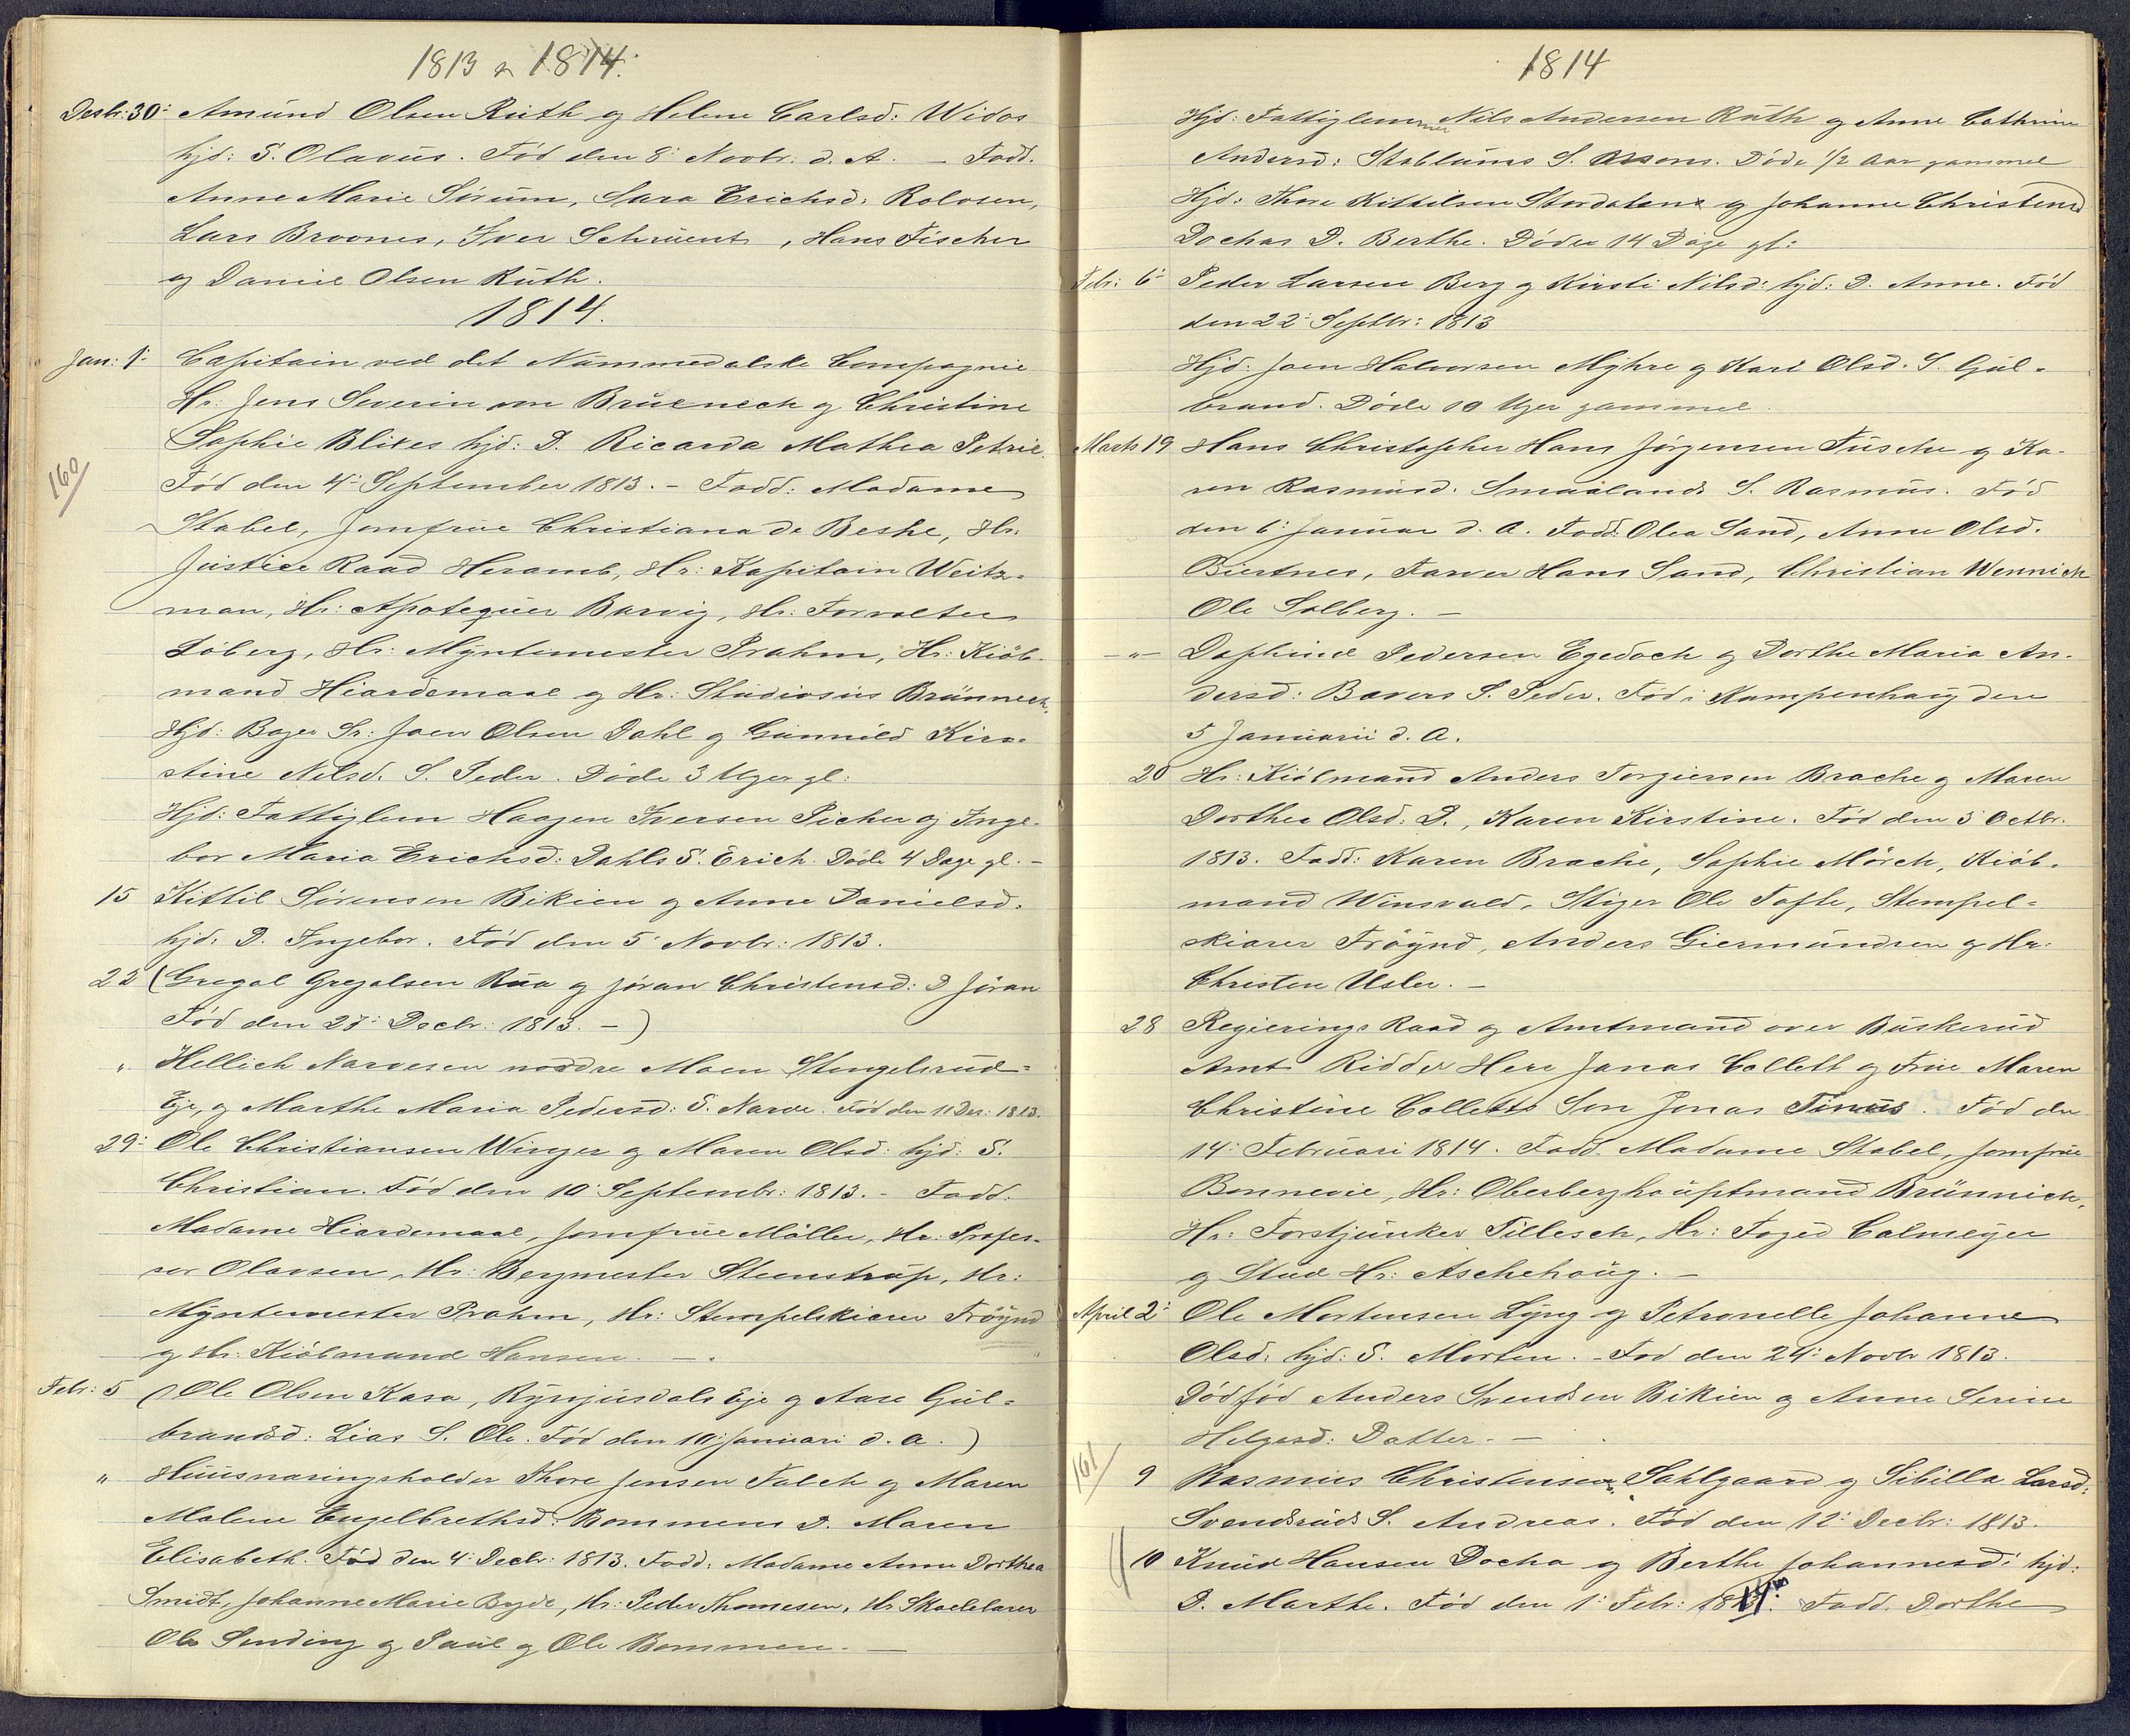 1813 & 1814.
Desbr: 30: Amund Olsen Ruth og Helene Carlsd: Widos
hjd: S. Olavus. Fød den 8: Novbr. d. A. – Fadd.
Anne Marie Sørum, Sara Erichsd: Rolosen,
Lars Broones, Iver Schruentz, Hans Fischer
og Daniel Olsen Ruth.
1814.
Jan: 1: Capitain ved det Nummedalske Compagnie
Hr: Jens Severin von Bruenech og Christine
Sophie Blixes hjd: D. Ricarda Mathea Petrie.
160
Fød den 4: September 1813. – Fadd: Madame
Stabel, Jomfrue Christiana de Beshe, Hr.
Justice Raad Heramb, Hr: Kapitain Weitz-
man, Hr: Apotequer Barvig, Hr: Forvalter
Løberg, Hr: Myntemester Prahm, Hr: Kiøb-
mand Hiardemaal og Hr: Studiosus Brünnech.
Hjd: Bager Sr: Joen Olsen Dahl og Gunnild Kir-
stine Nilsd. S. Peder. Døde 3 Uger gl:
Hjd: Fattiglem Haagen Iversen Picher og Inge-
bor Maria Erichsd: Dahls S. Erich. Døde 4 Dage gl. –
15 Kittil Sørensen Bikien og Anne Danielsd.
hjd: D. Ingebor. Fød den 5: Novbr: 1813.
22 (Gregal Gregalsen Rua og Jøran Christensd: D Jøran
Fød den 27: Decbr: 1813. –)
" Hellich Narvesen nordre Moen Stengelsrud-
Eje, og Marthe Maria Pedersd: S. Narve. Fød den 11 Des: 1813.
29: Ole Christiansen Winger og Maren Olsd: hjd: S.
Christian. Fød den 10: Septembr: 1813. – Fadd:
Madame Hiardemaal, Jomfrue Møller, Hr: Profes-
sor Olavsen, Hr: Bergmester Steenstrup, Hr:
Myntemester Prahm, Hr: Stempelskiærer Trøynd
og Hr: Kiøbmand Hansen. –
Febr: 5 (Ole Olsen Kasa, Ryujusdals Eje og Aase Gul-
brandsd: Lias S. Ole. Fød den 10: Januari d. a.)
" Huusnæringsholder Thore Jensen Falch og Maren
Malene Engelbrethsd: Bommens D. Maren
Elisabeth. Fød den 4: Decbr: 1813. Fadd: Madame Anne Dorthea
Smidt, Johanne Marie Byde, Hr: Peder Thomesen, Hr Skoelelærer
Ole Sending og Paul og Ole Bommen. –
1814
Hjd: Fattiglemmer Nils Andersen Ruth og Anne Cathrine
Andersd: Stablums S. Døde 1/2 Aar gammel
Hjd: Thore Kittilsen Stordalen og Johanne Christensd
Dochas D. Berthe. Døde 14 Dage gl:
Febr: 6: Peder Larsen Berg og Kirsti Nilsd: hjd: D. Anne. Fød
den 22: Septbr: 1813
Hjd: Joen Halvorsen Myhre og Kari Olsd. S. Gul-
brand. Døde 10 Uger gammel.
Marts 19 Hans Christopher Hans Jørgensen Fusche og Ka-
ren Rasmusd. Smaalands S. Rasmus. Fød
den 6: Januar d. A. Fadd: Olea Sand, Anne Olsd.
Biertnes, Farver Hans Sand, Christian Wennich
Ole Solberg. –
–"– Daphinel Pedersen Egedoch og Dorthe Maria An-
dersd: Bævers S. Peder. Fød i Kampenhaug den
5 Januarii d. A.
20 Hr: Kiøbmand Anders Torgiersen Brache og Maren
Dorthea Olsd: D., Karen Kirstine. Fød den 5 Octbr.
1813. Fadd: Karen Brache, Sophie Mørch, Kiøb-
mand Winsvald, Stiger Ole Tofte, Stempel-
skiærer Trøynd, Anders Giermundsen og Hr:
Christen Usler. –
28 Regierings Raad og Amtmand over Buskerud
Amt Ridder Herr Jonas Collett og Frue Maren
Christine Colletts Søn Jonas Tinus. Fød den
14: Februari 1814. Fadd. Madame Stabel, Jomfrue
Bonnevie, Hr: Oberberghauptmand Brünnich,
Hr: Forstjunker Tillesch, Hr: Foged Calmeyer
og Stud Hr: Aschehoug. –
April 2: Ole Mortensen Lyng og Petronelle Johanne
Olsd: hjd: S. Morten. – Fød den 24: Novbr 1813.
Dødfød Anders Svendsen Bikien og Anne Serine
Helgesd: Datter. –
161
9 Rasmus Christensen Sahlgaard og Sibilla Larsd.
Svendsruds S. Andreas. Fød den 12: Decbr: 1813.
10 Knud Hansen Docha og Berthe Johannesd: hjd:
D. Marthe. Fød den 1: Febr: 1814. Fadd. Dorthe